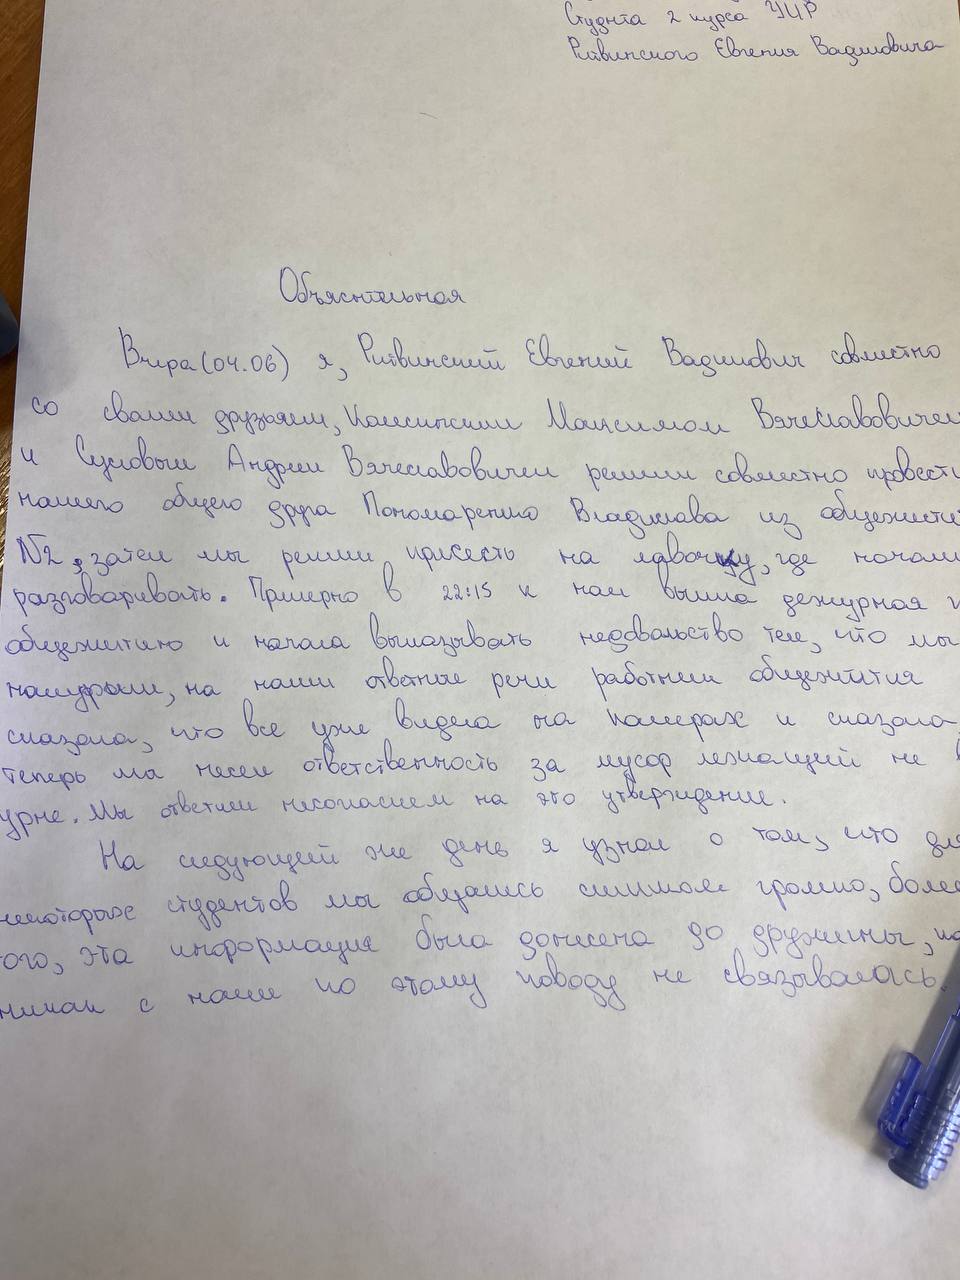 Студнта 2 курса УЦР
Ритвинского Евгения Вадимовича
Объяснтельная
Вчера (04.06) я, Ритвинский Евгений Вадимович совместно
со своими друзьями, Камсинским Максимом Вячеславовичем
и Сусловым Андреем Вячеславовичем решили совместно провести
нашего общего друга Пономаренко Владислава из общежития
№2, затем мы решили присесть на лавочку, где начали
разговаривать. Примерно в 22:15 к нам вышла дежурная п
общежитию и начала высказывать недовольство тем, что мы
намусорили, на наши ответные речи работник общежития
сказала, что все уже видела на камерах и сказала,
теперь мы несем ответственность за мусор лежащий не в
урне. Мы ответили несогласием на это утверждение.
На следующий же день я узнал о том, что для
некоторых студентов мы общались слишком громко, более
ого, эта информация была донесена до дружины, ко
никак с нами по этому поводу не связывалась.